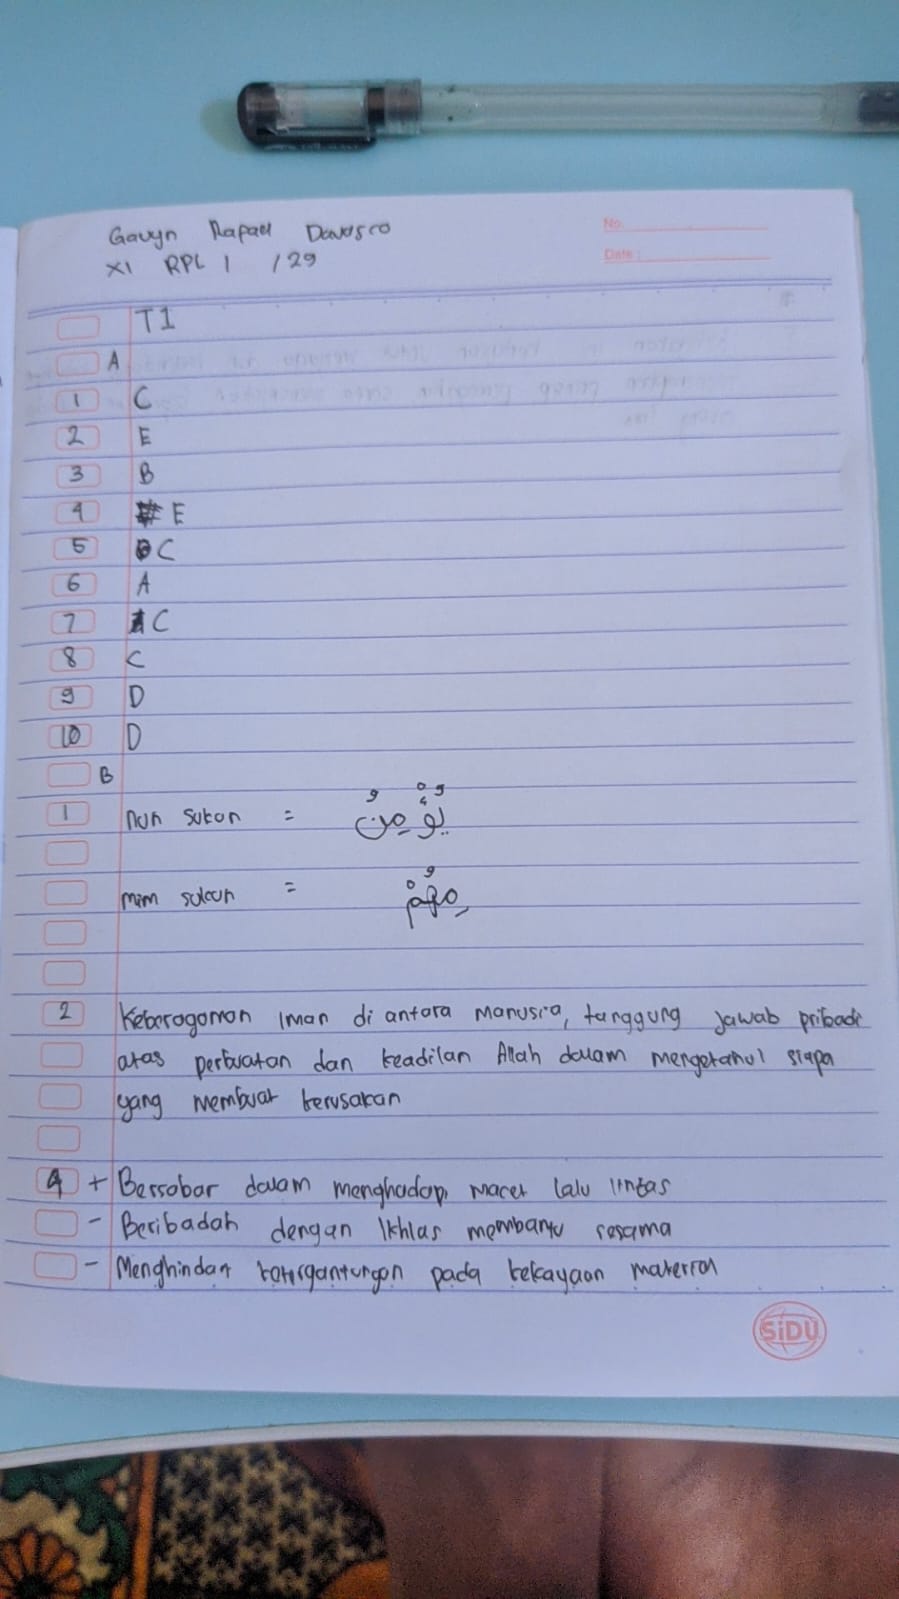 Gavyn Rafael Davasco
XI RPL 1 / 29
No.
Date :
T1
A
1 C
2 E
3 B
4 E
5 C
6 A
7 C
8 C
9 D
10 D
B
1 nun sukun =
mim sukun =
2 Keberagaman Iman di antara manusia, tanggung jawab pribadi
atas perbuatan dan keadilan Allah dalam mengetahui siapa
yang membuat kerusakan
4 + Bersabar dalam menghadapi macet lalu lintas
- Beribadah dengan Ikhlas membantu sesama
- Menghindari ketergantungan pada kekayaan material
SiDU